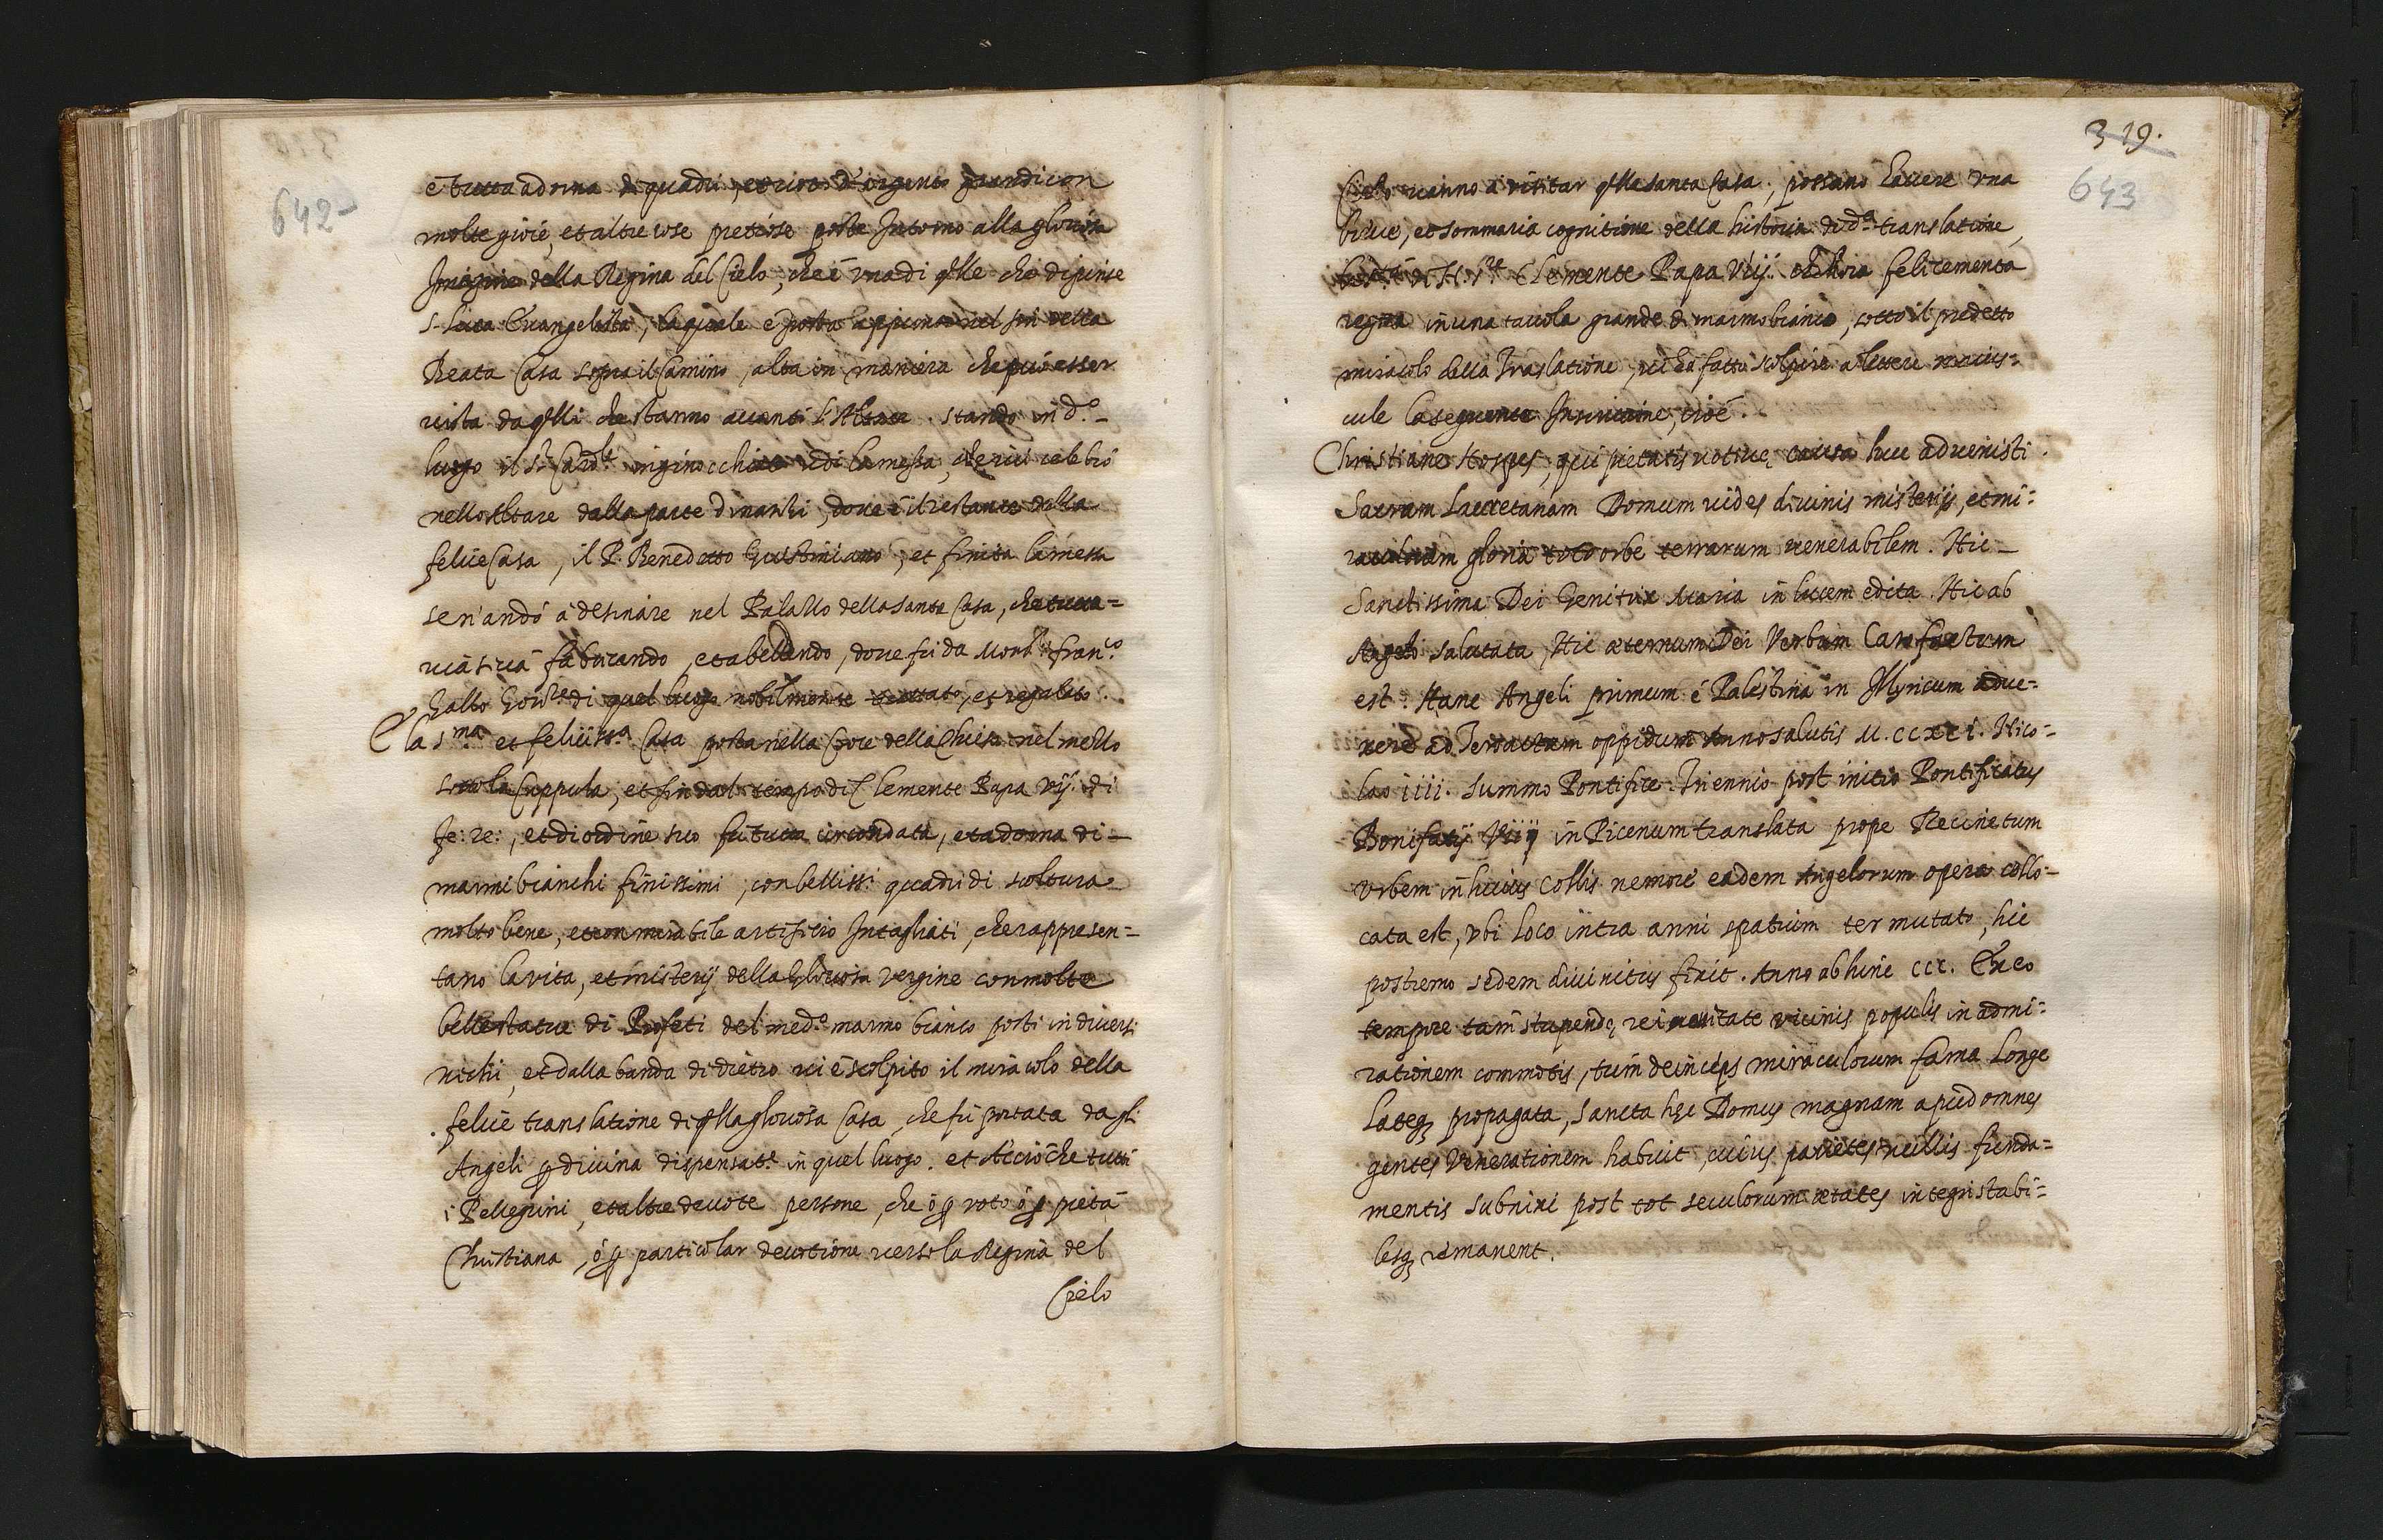 642
è tutta adorna di quadri, et voti d'argento grandi con
molte gioie, et altre cose pretiose poste Intorno alla gloriosa
Imagine della Regina del Cielo, che è una di qlle che dipinse
S. Luca Evangelista, la quale è posta appunto nel fin della
Beata Casa sopra il Camino, alta in maniera che può esser
vista da qlli che stanno avanti l'Altare. stando in d.o
luogo il S.r Card.le inginocchiato udi la messa, che ivi celebrò
nello Altare dalla parte dinanzi, dove è il restante della
felice Casa, il P. Benedetto Giustiniano, et finita la messa
sen'andò à desinare nel Palazzo della santa Casa, che tutta=
via si và fabricando, et abellendo, dove fu da Mons.r Fran.co
Gallo Gov.re di quel luogo nobilmente trattato, et regalato.
E la S.ma et feliciss.a Casa posta nella Croce della Chiesa nel mezzo
sotto la Cuppula, et fin dal tempo di Clemente Papa Vij. di
fe: re:, et di ordine suo fu tutta circondata, et adorna di
marmi bianchi finissimi, con belliss.i quadri di scoltura
molto bene, et con mirabile artificio Intagliati, che rappresen=
tano la vita, et misterij della Gloriosa Vergine con molte
belle statue di Profeti del med.o marmo bianco posti in diversi
nichi, et dalla banda di dietro vi è scolpito il miracolo della
felice translatione di qlla gloriosa Casa, che fu portata da gli
Angeli p divina dispensat.e in quel luogo. et Acciò che tutti
i Pellegrini, et altre devote persone, che ò p voto ò p pietà
Christiana, ò p particolar devotione verso la Regina del
Cielo
319.
643
Cielo vanno à visitar qlla santa Casa, possano havere una
breve, et sommaria cognitione della historia di d.a translatione,
la S.tà di N. S.re Clemente Papa Viij. che hora felicemente
regna in una tavola grande di marmo bianco, sotto il predetto
miracolo della Traslatione, vi ha fatto scolpire a lettere maius=
cule la seguente Inscrittione, cioè.
Christiane Hospes, qui pietatis votive causa huc advenisti
Sacram Lauretanam Domum vides divinis misterijs, et mi=
raculorum gloria toto orbe terrarum venerabilem. Hic
Sanctissima Dei Genitrix Maria in lucem edita. Hic ab
Angelo salutata, Hic æternum Dei Verbum Caro factum
est. Hanc Angeli primum è Palestina in Illyricum advex=
ere ad Tersactum oppidum Anno salutis M.CCXCI. Nico=
lao iiii. summo Pontifice. Triennio post initio Pontificatus
Bonifatij Viij in Picenum translata prope Recinetum
Urbem in huius Collis nemore eadem Angelorum opera collo=
cata est, Ubi loco intra anni spatium ter mutato, hic
postremo sedem divinitus fixit. Anno ab hinc CCC. Ex eo
tempore tam stupendę rei novitate vicinis populis in admi=
rationem commotis, tum deinceps miraculorum fama longe
lateq; propagata, Sancta hęc Domus magnam apud omnes
gentes Venerationem habuit, cuius parietes nullis funda=
mentis subnixi post tot seculorum ætates integri stabi=
lesq; remanent.